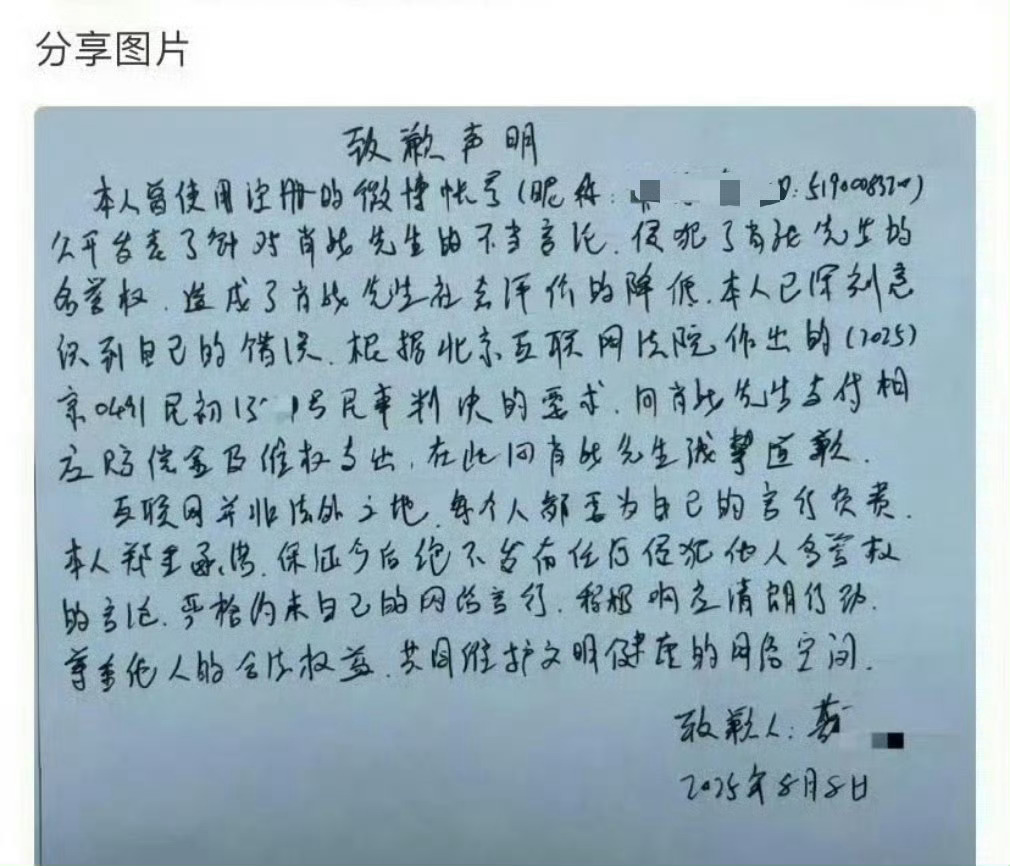 分享图片
致歉声明
本人曾使用注册的微博帐号(昵称: D:519000832)
公开发表了针对肖战先生的不当言论,侵犯了肖战先生的
名誉权,造成了肖战先生社会评价的降低.本人已深刻意
识到自己的错误.根据北京互联网法院作出的(2025)
京0491民初13 1号民事判决的要求,向肖战先生支付相
应赔偿金及维权支出,在此向肖战先生诚挚道歉.
互联网并非法外之地,每个人都要为自己的言行负责.
本人郑重承诺,保证今后绝不发布任何侵犯他人名誉权
的言论,严格约束自己的网络言行,积极响应清朗行动.
尊重他人的合法权益,共同维护文明健康的网络空间.
致歉人:
2025年8月8日